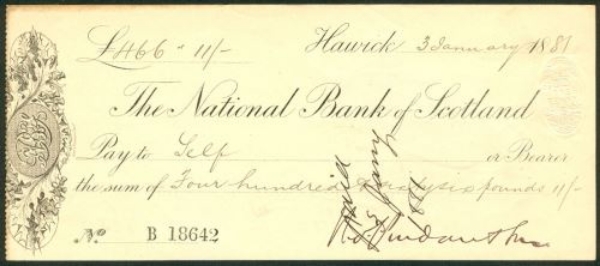 £466 " 11/- Hawick 3 January 1881
The National Bank of Scotland
Pay to Self or Bearer
the sum of Four hundred & sixty six pounds 11/-
No. B 18642
Paid
3 Jany
1881